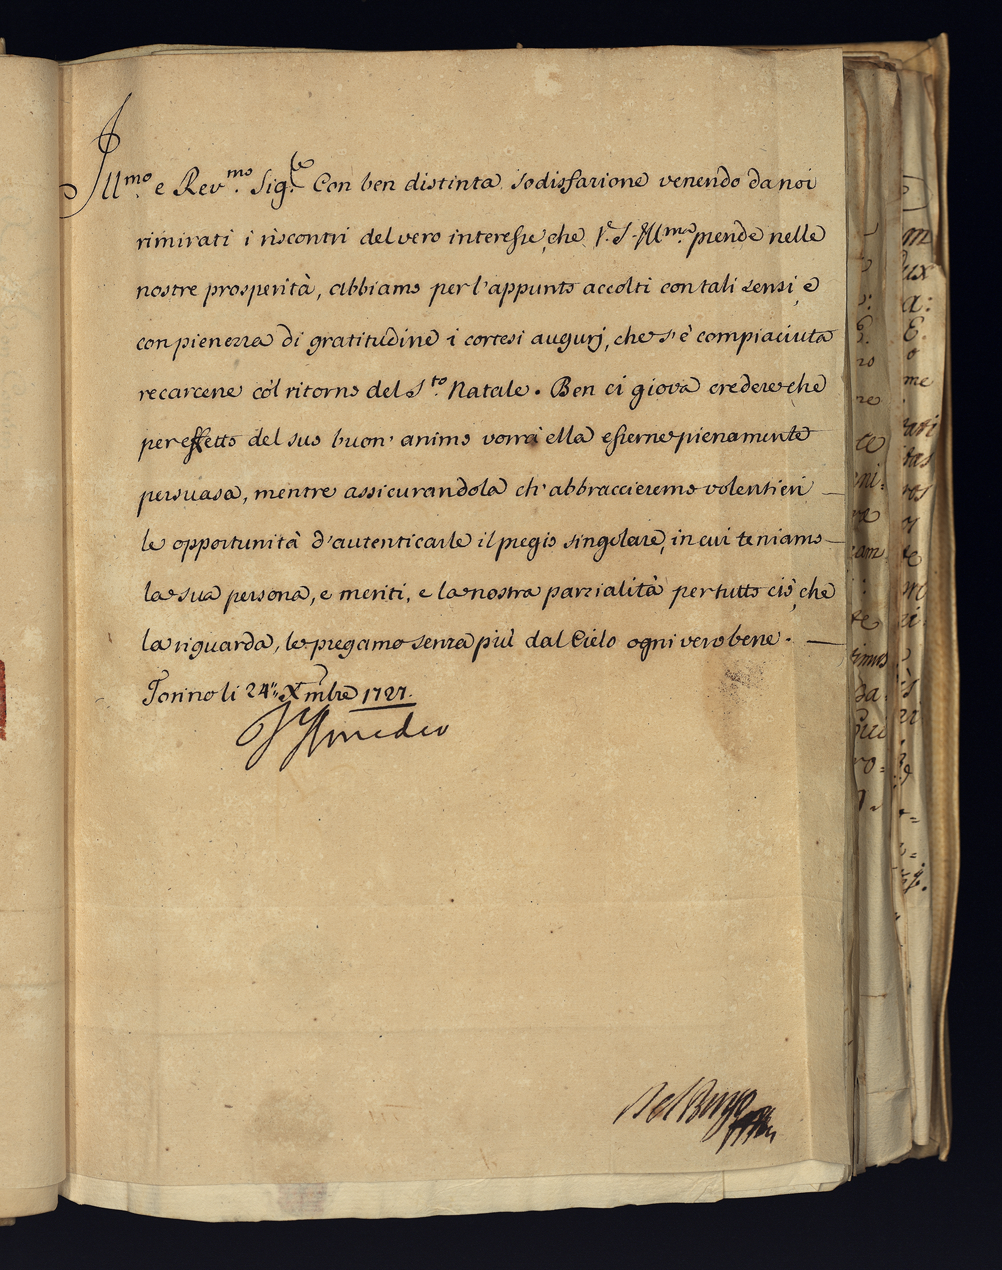 Ill.mo e Rev.mo Sig.re Con ben distinta sodisfazione venendo da noi
rimirati i riscontri del vero interesse, che V. S. Ill.ma prende nelle
nostre prosperità, abbiamo per l'appunto accolti con tali sensi, e
con pienezza di gratitudine i cortesi augurj, che s'è compiaciuta
recarcene col ritorno del S.to Natale. Ben ci giova credere, che
per effetto del suo buon' animo vorrà ella esserne pienamente
persuasa, mentre assicurandola ch' abbraccieremo volentieri
le opportunità d'autenticarle il pregio singolare, in cui teniamo
la sua persona, e meriti, e la nostra parzialità per tutto ciò, che
la riguarda, le pregamo senza più dal Cielo ogni vero bene.
Torino li 24" Xmbre 1727.
V Amedeo
Del Borgo